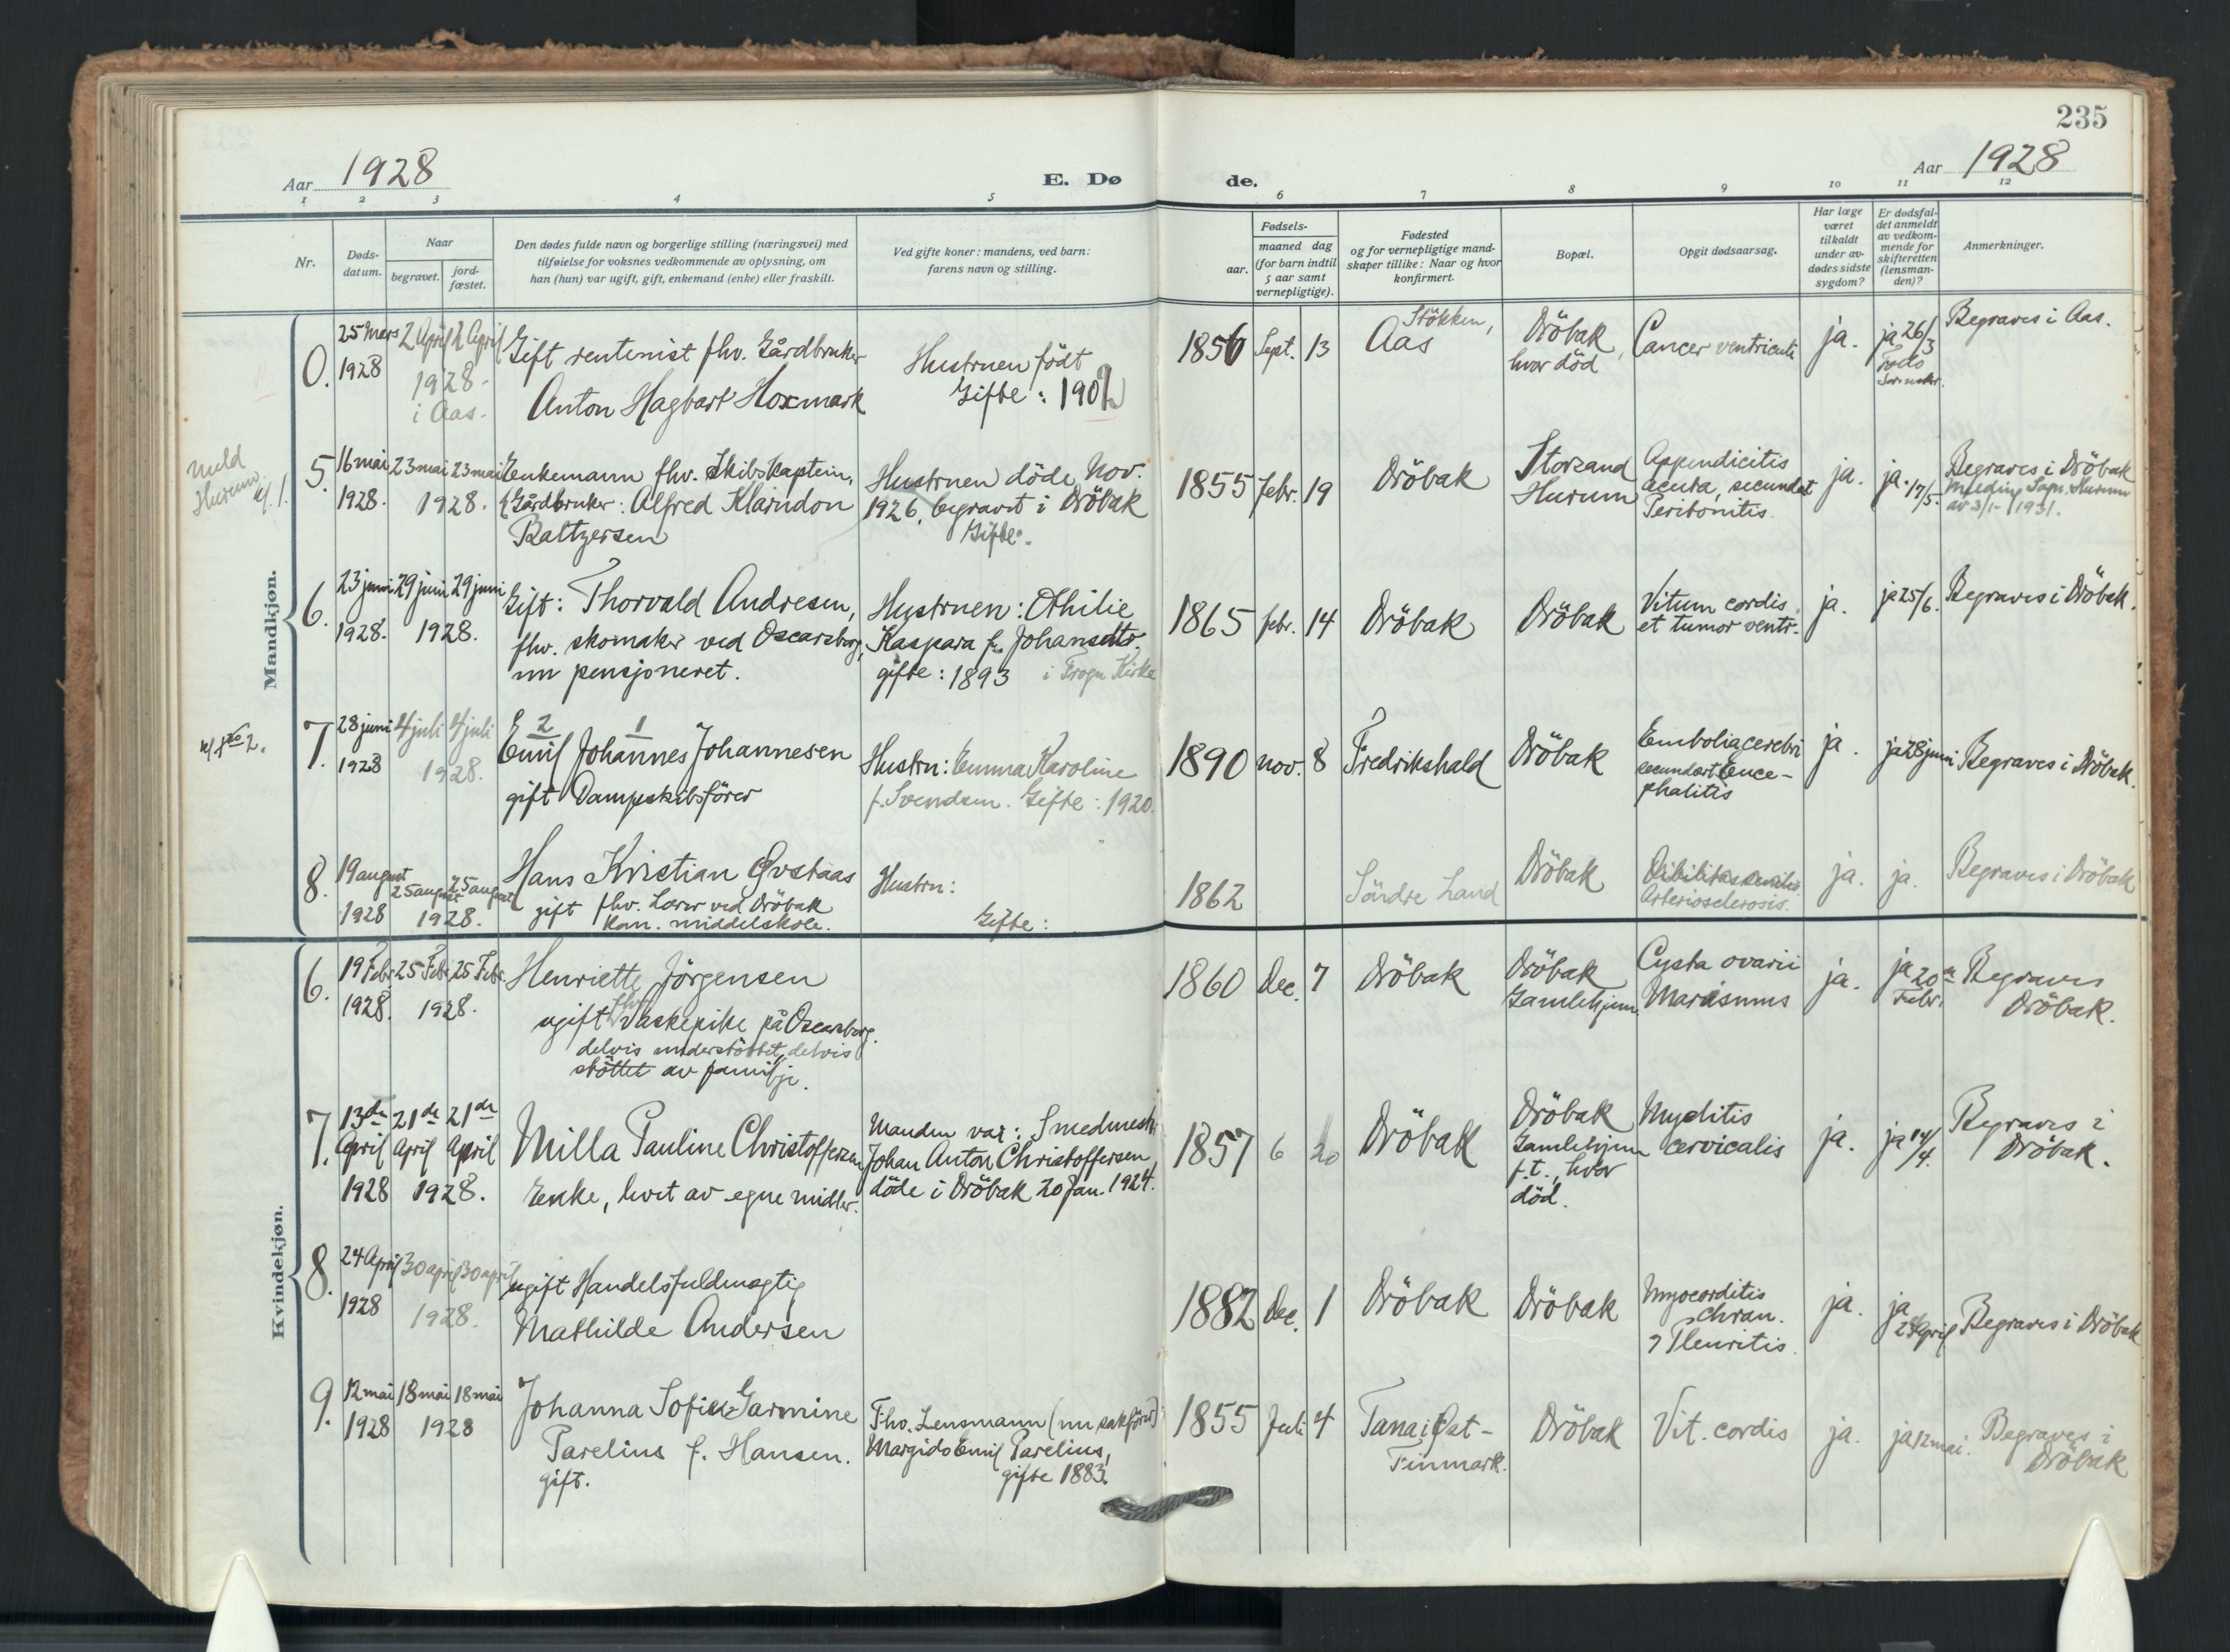 235
Aar 1928
E. Dø
de.
Aar 1928
1 2 3 4 5 6 7 8 9 10 11 12
Nr.
Døds-
datum.
Naar
begravet.
jord-
fæstet.
Den dødes fulde navn og borgerlige stilling (næringsvei) med
tilføielse for voksnes vedkommende av oplysning, om
han (hun) var ugift, gift, enkemand (enke) eller fraskilt.
Ved gifte koner: mandens, ved barn:
farens navn og stilling.
Fødsels-
aar.
maaned dag
(for barn indtil
5 aar samt
vernepligtige).
Fødested
og for vernepligtige mand-
skaper tillike: Naar og hvor
konfirmert.
Bopæl.
Opgit dødsaarsag.
Har læge
været
tilkaldt
under av-
dødes sidste
sygdom?
Er dødsfal-
det anmeldt
av vedkom-
mende for
skifteretten
(lensman-
den)?
Anmerkninger.
Mandkjøn.
0.
25 Mars
1928
2 April 2 April
1928.
i Aas.
Gift rentenist fhv. Gårdbruker
Anton Hagbart Hoxmark
Hustruen födt
Gifte: 1902
1856 Sept. 13
Stökken,
Aas
Dröbak,
hvor död
Cancer ventriculi
ja.
ja 26/3
Begraves i Aas.
Meld
Hurum
5.
16 mai
1928.
23 mai 23 mai
1928.
Enkemann fhv. Skibskaptein,
& Gårdbruker: Alfred Klarndon
Baltzersen
Hustruen döde Nov.
1926, begravet i Dröbak
Gifte:
1855 febr. 19
Dröbak
Storsand
Hurum
Appendicitis
acuta, secundat
Peritonitis.
ja.
ja. 17/5.
Begraves i Dröbak
Hurum
av 3/1- 1931.
6.
23 juni
1928.
29 juni 29 juni
1928.
Gift: Thorvald Andresen,
fhv. skomaker ved Oscarsborg,
nu pensjoneret.
Hustruen: Othilie
Kaspara f. Johansdtr.
gifte: 1893 i Frogn Kirke
1865 febr. 14
Dröbak
Dröbak
Vitum cordis
et tumor ventr.
ja.
ja 25/6.
Begraves i Dröbak.
7.
28 juni
1928
4 juli 4 juli
1928.
2 1
Emil Johannes Johannesen
gift Dampskibsförer
Hustru: Emma Karoline
f. Svendsen. Gifte: 1920.
1890 nov. 8
Fredrikshald
Dröbak
Embolia cerebri
secundært Ence-
phalitis
ja.
ja 28 juni
Begraves i Dröbak.
8.
19 august
1928
25 august 25 august
1928.
Hans Kristian Ovstaas
gift fhv. Lærer ved Dröbak
kom. middelskole.
Hustru:
Gifte:
1862
Söndre Land
Dröbak
Arteriosclerosis.
ja.
ja.
Begraves i Dröbak
Kvindekjøn.
6.
19 Febr.
1928.
25 Febr. 25 Febr.
1928.
Henriette Jörgensen
ugift fhv. Vaskepike på Oscarsborg.
delvis understöttet, delvis
stöttet av familje.
1860 Dec. 7
Dröbak
Dröbak
Gamlehjem.
Cysta ovarii
Marasmus
ja.
ja 20de
Febr.
Begraves
Dröbak.
7.
13de
April
1928
21de 21de
April April
1928.
Milla Pauline Christoffersen
Enke, levet av egne midler.
Manden var: Smedmestr.
Johan Anton Christoffersen
döde i Dröbak 20 Jan. 1924.
1857 6 20
Dröbak
Dröbak
Gamlehjem
f.t., hvor
död.
Myelitis
cervicalis
ja.
ja 14/4.
Begraves i
Dröbak.
8.
24 April
1928
30 april 30 april
1928.
ugift Handelsfuldmægtig
Mathilde Andersen
1882 Dec. 1
Dröbak
Dröbak
Myocarditis
chron.
Pleuritis.
ja.
ja
April
Begraves i Dröbak
9.
12 mai
1928
18 mai 18 mai
1928
Johanna Sofie Garmine
Parelius f. Hansen.
gift.
Fhv. Lensmann (nu sakförer)
Margido Emil Parelius,
gifte 1883.
1855 Juli 4
Tana i Öst-
Finmark.
Dröbak
Vit. cordis
ja.
ja 12 mai.
Begraves i
Dröbak